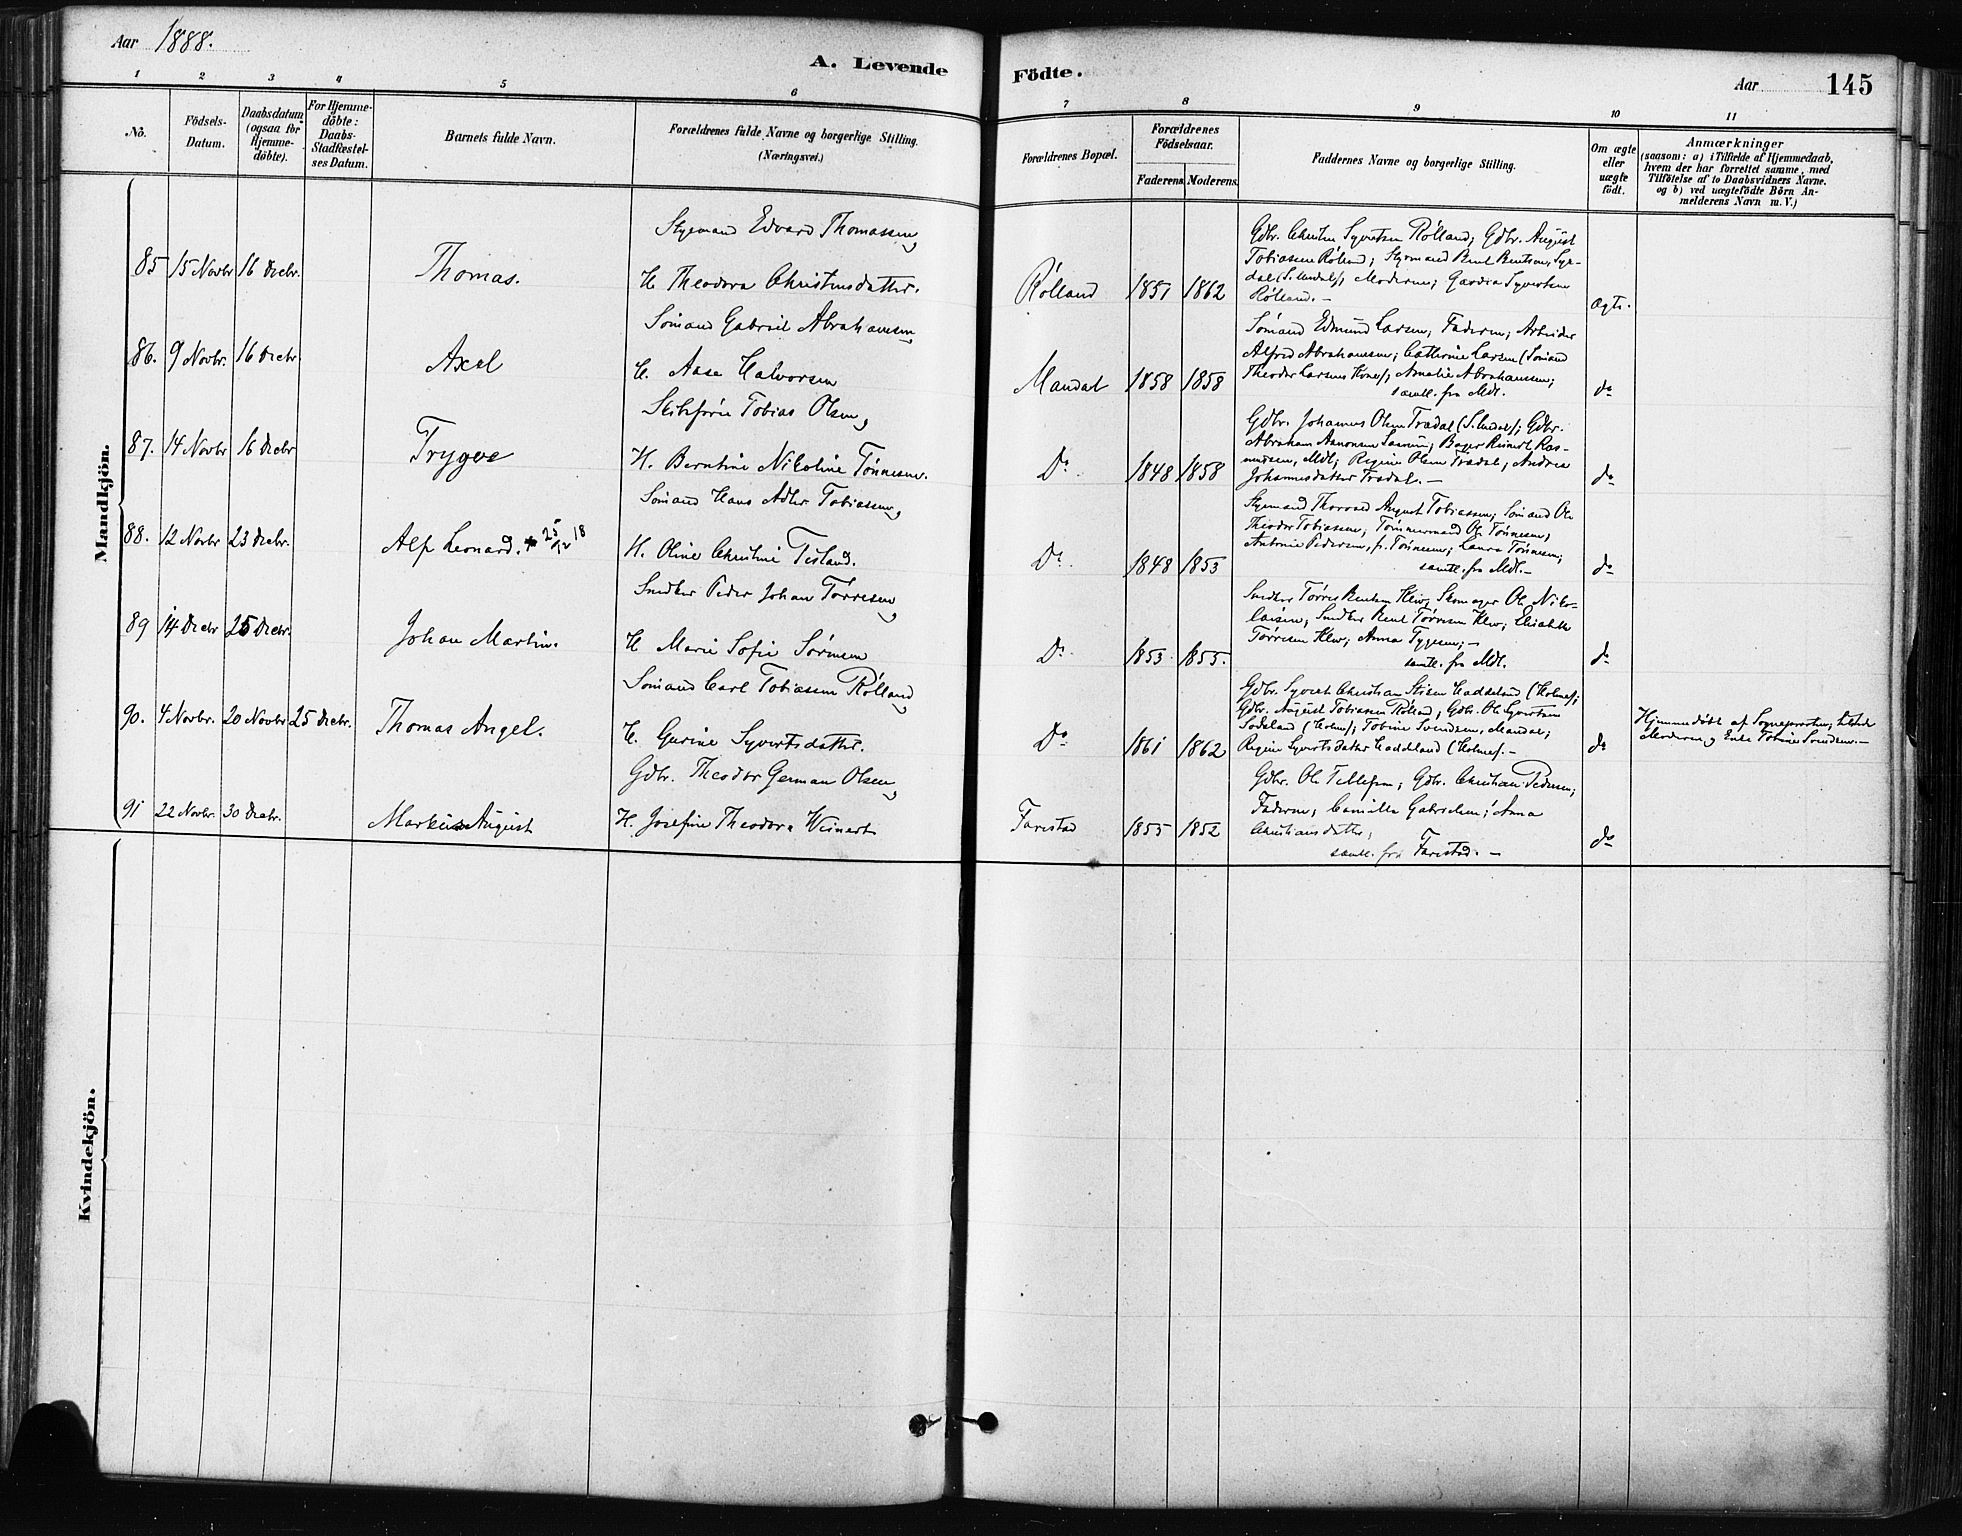 Aar 1888.
A. Levende Födte.
Aar 145
1 2 3 4 5 6 7 8 9 10 11
No.
Födsels-Datum.
Daabsdatum (ogsaa for Hjemme-döbte).
For Hjemme-döbte: Daabs-Stadfæstel-ses Datum.
Barnets fulde Navn.
Forældrenes fulde Navne og borgerlige Stilling. (Næringsvei.)
Forældrenes Bopæl.
Forældrenes Födselsaar.
Faderens. Moderens.
Faddernes Navne og borgerlige Stilling.
Om ægte eller uægte födt.
Anmærkninger
(saasom: a) i Tilfælde af Hjemmedaab,
hvem der har forrettet samme, med
Tilföielse af to Daabsvidners Navne.
og b) ved uægtefödte Börn An-
melderens Navn m. V.)
Mandkjön.
85 15 Novbr 16 Decbr. Thomas.
Styrmand Edvard Thomassen,
H. Theodora Christensdatter.
Rölland 1851 1862
Gdbr. Christen Syvertsen Rölland; Gdbr. August
Tobiassen Rölland; Styrmand Bent Bentsen,
Moderen; Syvertsen
Rölland. —
ægte.
86. 9 Novbr. 16 Decbr. Axel
Sömand Gabriel Abrahamsen,
H. Aasa Halvorsen
Mandal 1858 1858
Sömand Edmund Larsen; Faderen; Arbeider
Alfred Abrahamsen; Cathrine Larsen (Sömand
Theodor Larsens Kone); Amalie Abrahamsen;
samtl. fra Mdl.
do
87. 14 Novbr 16 Decbr Trygve
Skibsförer Tobias Olsen,
H. Berntine Nikoline Tönnesen.
Do 1848 1858
Gdbr. Johannes Olsen Trædal (S. Undal); Gdbr.
Abraham Aanonsen; Bager Reinert Ras-
mussen, Mdl; Regine Olsen Trædal; Andrea
Johannesdatter Trædal. —
do
88. 12 Novbr 23 Decbr. Alf Leonard. 25/12 18
Sömand Hans Adler Tobiassen,
H. Oline Christine Tisland.
Do. 1848 1853
Styrmand Thorvald August Tobiassen; Sömand Ole
Theodor Tobiassen; Tömmermand Ol. Tönnesen;
Antonie Pedersen, f. Tönnesen; Laura Tönnesen;
samtl. fra Mdl. —
do
89 14 Decbr 25 Decbr. Johan Martin.
Snedker Peder Johan Törresen,
H. Marie Sofie Sörensen
Do. 1853 1855.
Snedker Törres Bentsen Klev; Skomager Ole Niko-
laisen; Snedker Bent Törresen Klev; Elisabeth
Törresen Klev; Anna Tygesen; —
samtl. fra Mdl.
do
90. 4 Novbr. 20 Novbr 25 Decbr. Thomas Angel.
Sömand Carl Tobiassen Rölland,
H. Gurine Syvertsdatter.
Do 1861 1862
Gdbr. Syvert Christian Haddeland (Holme);
Gdbr. August Tobiassen Rölland; Gdbr. Ole Syvertsen
(Holme); Tobine Svendsen, Mandal;
Regine Syvertsdatter Haddeland (Holme). —
do
Hjemmedöbt af Sognepresten; tilstede
Moderen og Enke Tobine Svendsen. —
91 22 Novbr. 30 Decbr. Markus August
Gdbr. Theodor German Olsen,
H. Josefine Theodora Weinert
Farestad 1855 1852
Gdbr. Ole Tellefsen; Gdbr. Christian Pedersen;
Faderen; Camilla Gabrielsen; Anna
Christiansdatter;
samtl. fra Farestad. —
do
Kvindekjön.